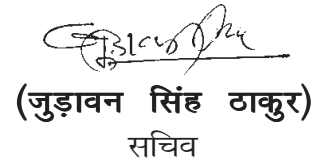 (जुड़ावन सिंह ठाकुर)
सचिव